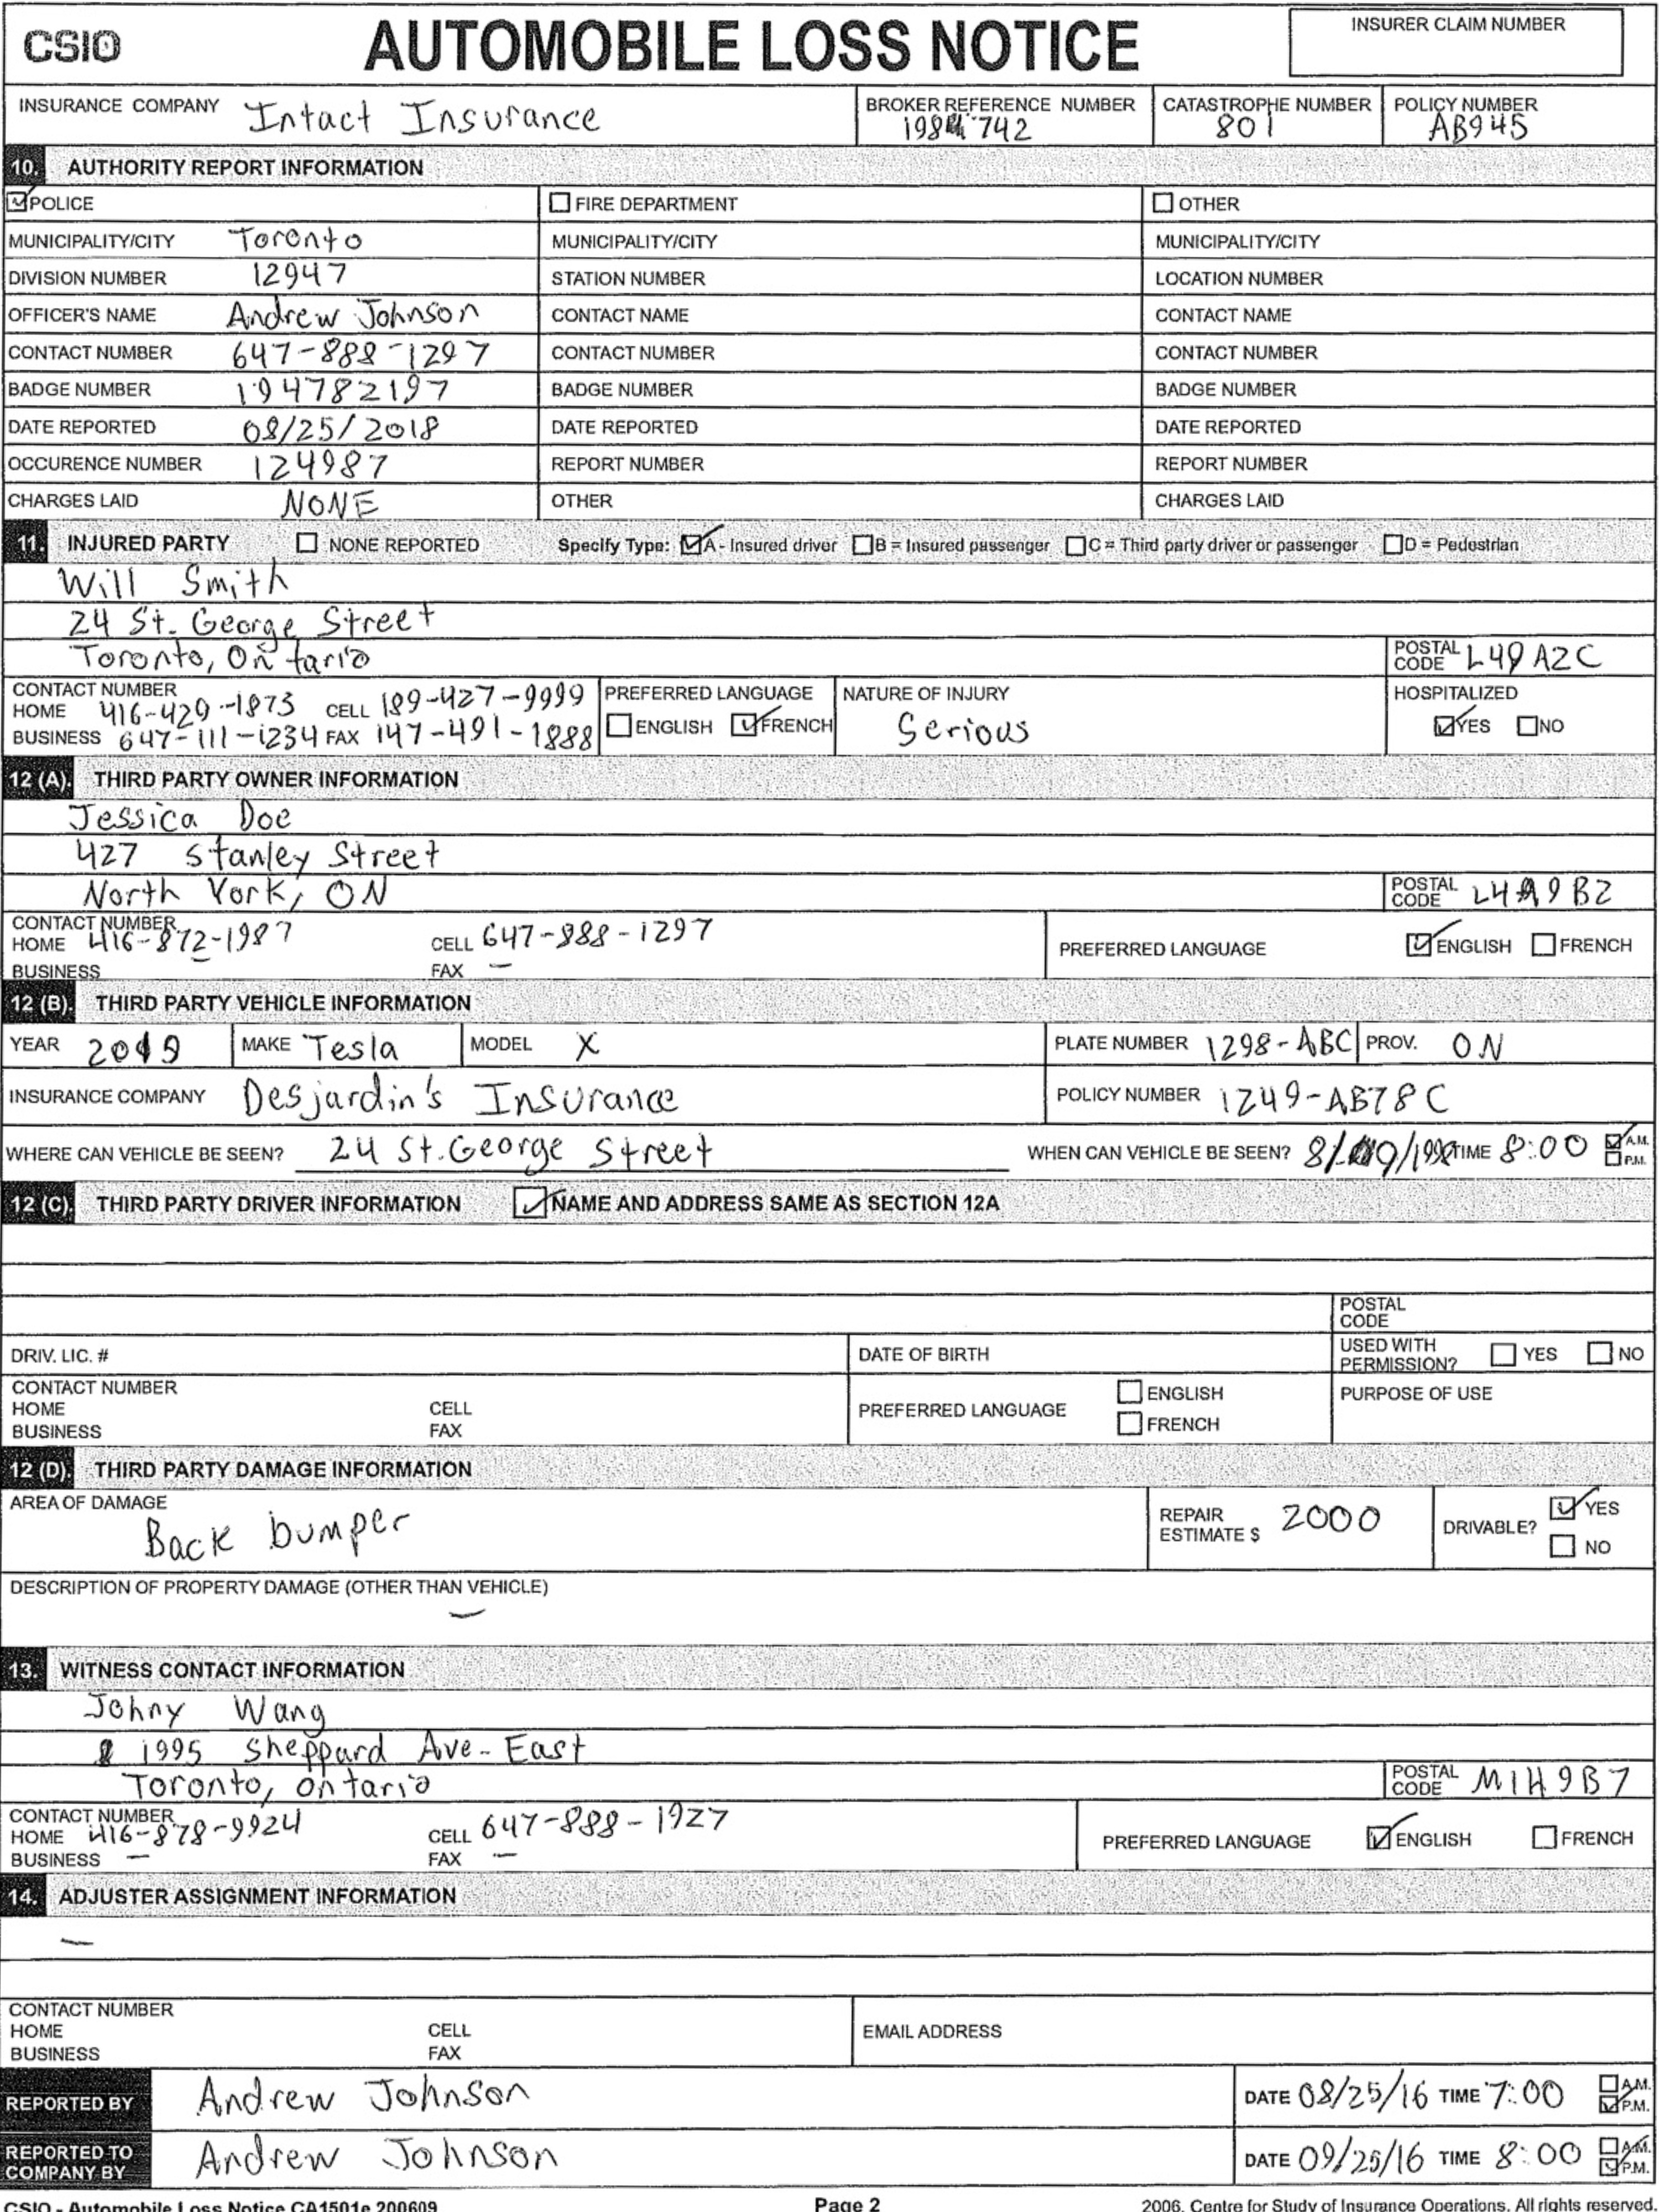 CSIO
AUTOMOBILE LOSS NOTICE
INSURER CLAIM NUMBER
INSURANCE COMPANY Intact Insurance
BROKER REFERENCE NUMBER
742
CATASTROPHE NUMBER
801
POLICY NUMBER
AB945
10. AUTHORITY REPORT INFORMATION
POLICE FIRE DEPARTMENT OTHER
MUNICIPALITY/CITY Toronto MUNICIPALITY/CITY MUNICIPALITY/CITY
DIVISION NUMBER 12947 STATION NUMBER LOCATION NUMBER
OFFICER'S NAME Andrew Johnson CONTACT NAME CONTACT NAME
CONTACT NUMBER 647-888-1297 CONTACT NUMBER CONTACT NUMBER
BADGE NUMBER 194782197 BADGE NUMBER BADGE NUMBER
DATE REPORTED 08/25/2018 DATE REPORTED DATE REPORTED
OCCURENCE NUMBER 124987 REPORT NUMBER REPORT NUMBER
CHARGES LAID NONE OTHER CHARGES LAID
11. INJURED PARTY NONE REPORTED Specify Type: A - Insured driver B = Insured passenger C = Third party driver or passenger D = Pedestrian
Will Smith
24 St. George Street
Toronto, Ontario
POSTAL CODE A2C
CONTACT NUMBER
HOME 416-429-1873 CELL 189-427-9999
BUSINESS 647-111-1234 FAX 147-491-1888
PREFERRED LANGUAGE
ENGLISH FRENCH
NATURE OF INJURY
Serious
HOSPITALIZED
YES NO
12 (A). THIRD PARTY OWNER INFORMATION
Jessica Doe
427 Stanley Street
North York, ON
POSTAL CODE L4A9B2
CONTACT NUMBER
HOME 416-872-1987 CELL 647-888-1297
BUSINESS – FAX –
PREFERRED LANGUAGE ENGLISH FRENCH
12 (B). THIRD PARTY VEHICLE INFORMATION
YEAR 2019 MAKE Tesla MODEL X PLATE NUMBER 1298-ABC PROV. ON
INSURANCE COMPANY Desjardin's Insurance POLICY NUMBER 1249-AB78C
WHERE CAN VEHICLE BE SEEN? 24 St. George Street WHEN CAN VEHICLE BE SEEN? TIME 8:00 A.M.
P.M.
12 (C). THIRD PARTY DRIVER INFORMATION NAME AND ADDRESS SAME AS SECTION 12A
POSTAL CODE
DRIV. LIC. # DATE OF BIRTH USED WITH PERMISSION? YES NO
CONTACT NUMBER
HOME CELL
BUSINESS FAX
PREFERRED LANGUAGE
ENGLISH
FRENCH
PURPOSE OF USE
12 (D). THIRD PARTY DAMAGE INFORMATION
AREA OF DAMAGE
Back bumper
REPAIR ESTIMATE $ 2000
DRIVABLE? YES
NO
DESCRIPTION OF PROPERTY DAMAGE (OTHER THAN VEHICLE)
–
13. WITNESS CONTACT INFORMATION
Johny Wang
1995 Sheppard Ave. East
Toronto, Ontario
POSTAL CODE M1H9B7
CONTACT NUMBER
HOME 416-878-9924 CELL 647-888-1927
BUSINESS – FAX –
PREFERRED LANGUAGE ENGLISH FRENCH
14. ADJUSTER ASSIGNMENT INFORMATION
–
CONTACT NUMBER
HOME CELL
BUSINESS FAX
EMAIL ADDRESS
REPORTED BY Andrew Johnson DATE 08/25/16 TIME 7:00 A.M.
P.M.
REPORTED TO COMPANY BY Andrew Johnson DATE 09/25/16 TIME 8:00 A.M.
P.M.
CSIO - Automobile Loss Notice CA1501e 200609 Page 2 2006, Centre for Study of Insurance Operations. All rights reserved.